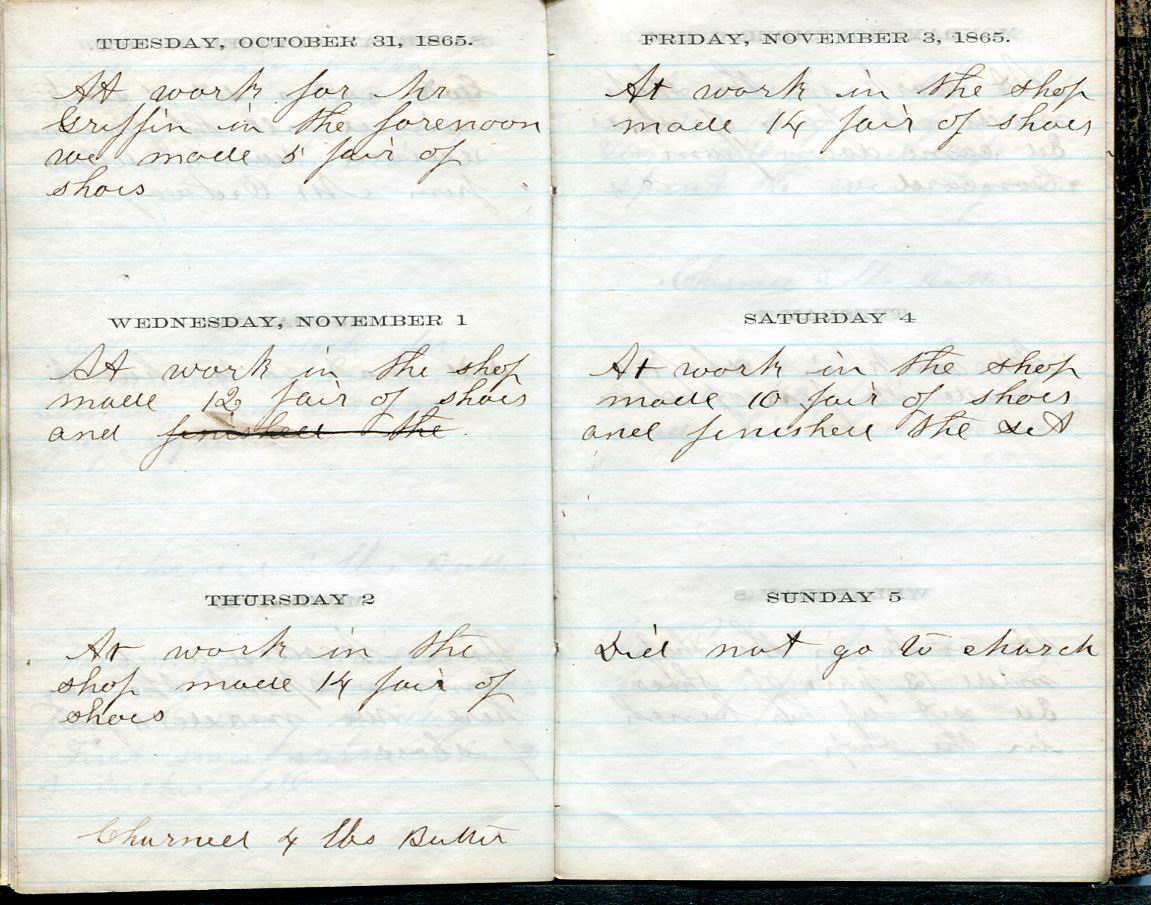 TUESDAY, OCTOBER 31, 1865.
At work for Mr
Griffin in the forenoon
we made 5 pair of
shoes
WEDNESDAY, NOVEMBER 1
At work in the shop
made 12 pair of shoes
and finished the
THURSDAY 2
At work in the
shop made 14 pair of
shoes
Churned 4 lbs Butter
FRIDAY, NOVEMBER 3, 1865.
At work in the shop
made 14 pair of shoes
SATURDAY 4
At work in the shop
made 10 pair of shoes
and finished the set
SUNDAY 5
Did not go to church